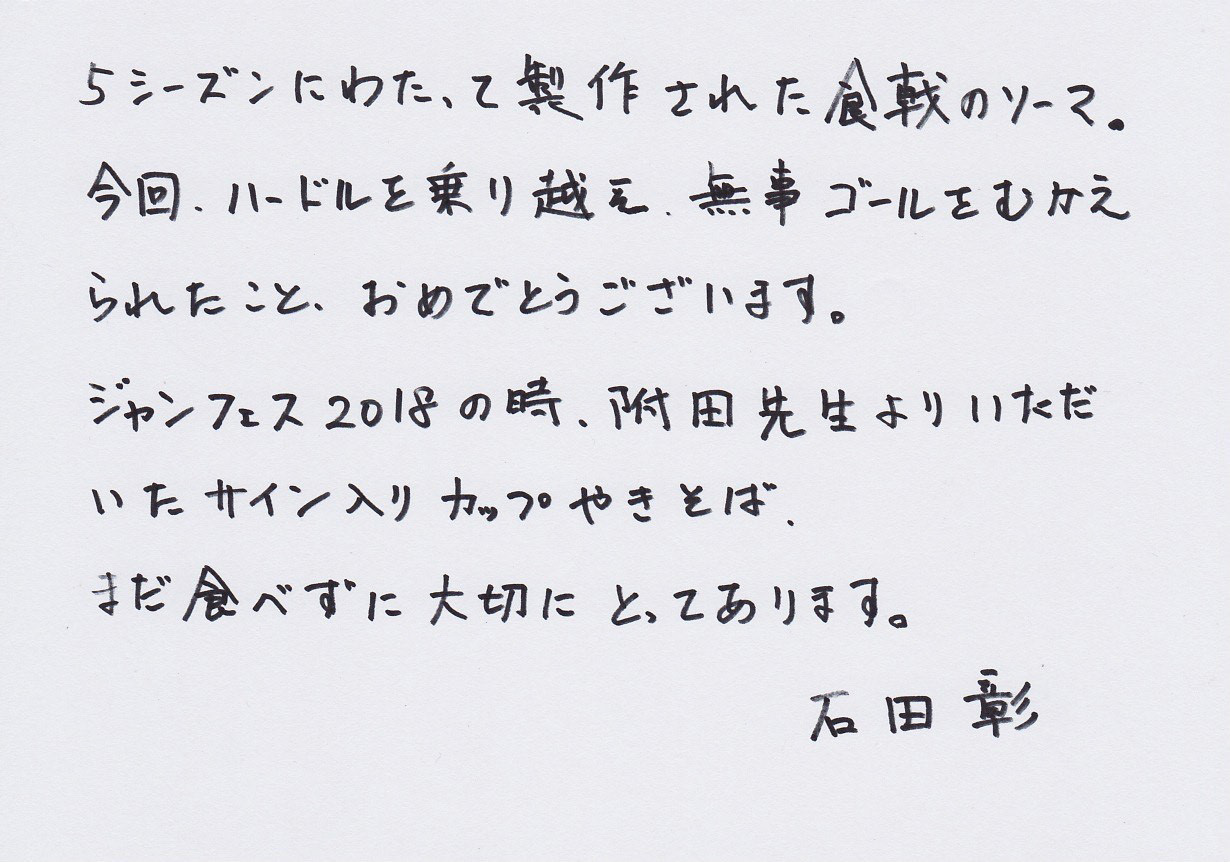 5シーズンにわたって製作された食戟のソーマ。
今回、ハードルを乗り越え、無事ゴールをむかえ
られたこと、おめでとうございます。
ジャンフェス2018の時、附田先生よりいただ
いたサイン入りカップやきそば、
まだ食べずに大切にとってあります。
石田彰